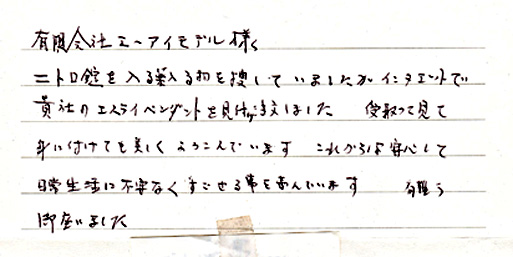 有限会社エーアイモデル様
ニトロ錠を入る薬入る物を捜していましたがインタネントで
貴社のエスライペンダントを見付け注文しました 受取って見て
身に付けても美しくよろこんでいます これからは安心して
日常生活に不安なくすごせる事を喜んでいます 有難う
御座いました